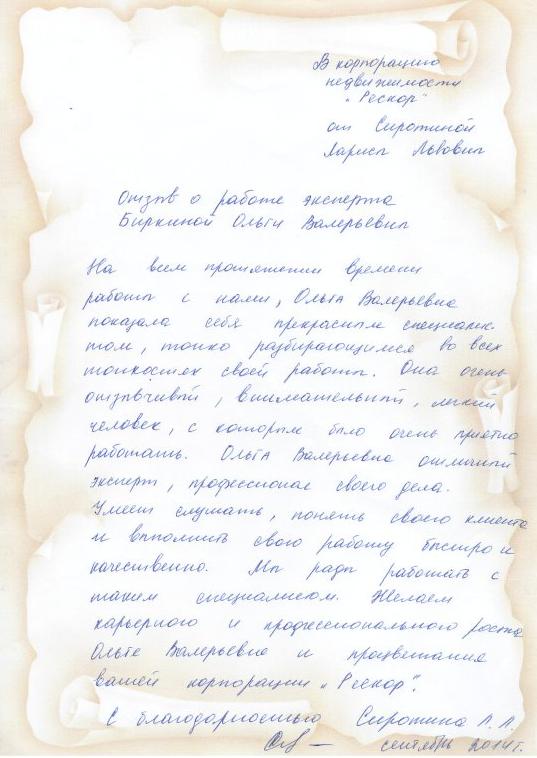 В корпорацию
недвижимости
"Рескор"
от Сиротиной
Ларисы Львовны
Отзыв о работе эксперта
Биркиной Ольги Валерьевны
На всем протяжении времени
работы с нами, Ольга Валерьевна
показала себя прекрасным специалис-
том, тонко разбирающимся во всех
тонкостях своей работы. Она очень
отзывчивый, внимательный, легкий
человек, с которым было очень приятно
работать. Ольга Валерьевна отличный
эксперт, профессионал своего дела.
Умеет слушать, понять своего клиента
и выполнить свою работу быстро и
качественно. Мы рады работать с
таким специалистом. Желаем
карьерного и профессионального роста
Ольге Валерьевне и процветания
вашей корпорации "Рескор".
С благодарностью Сиротина Л. Л.
сентябрь 2014 г.